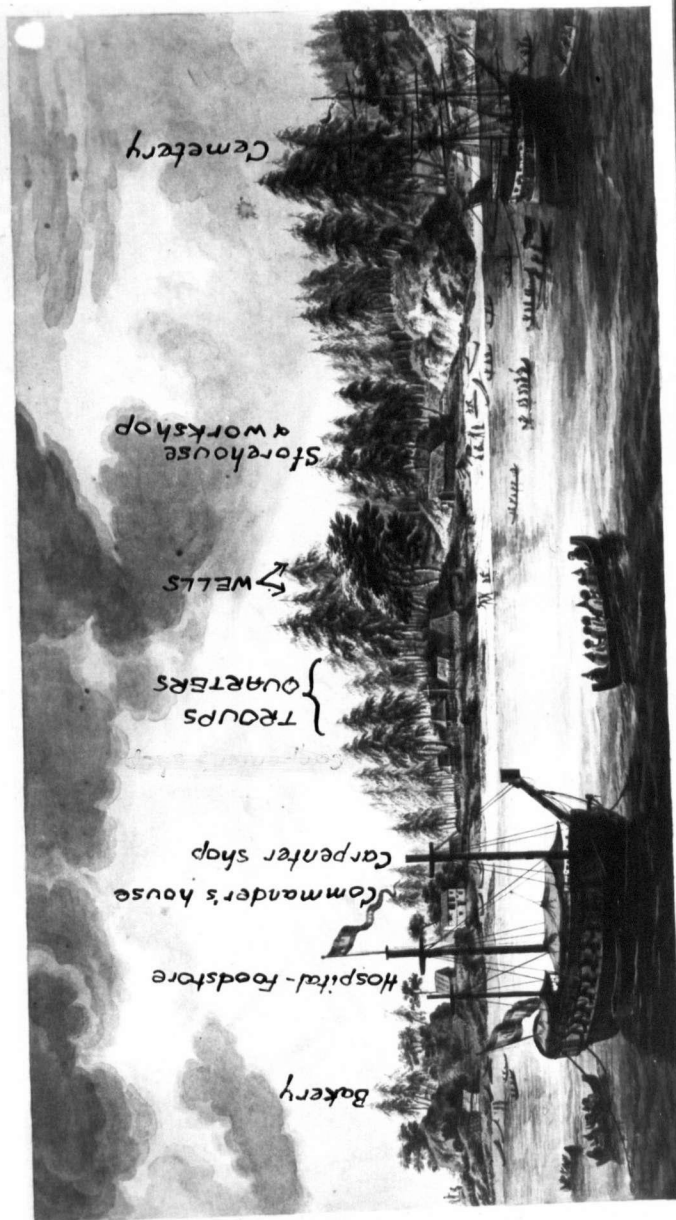 Bakery
Hospital-Foodstore
Commander's house
Carpenter shop
TROUPS
QUARTERS
WELLS
Storehouse
& workshop
Cemetery